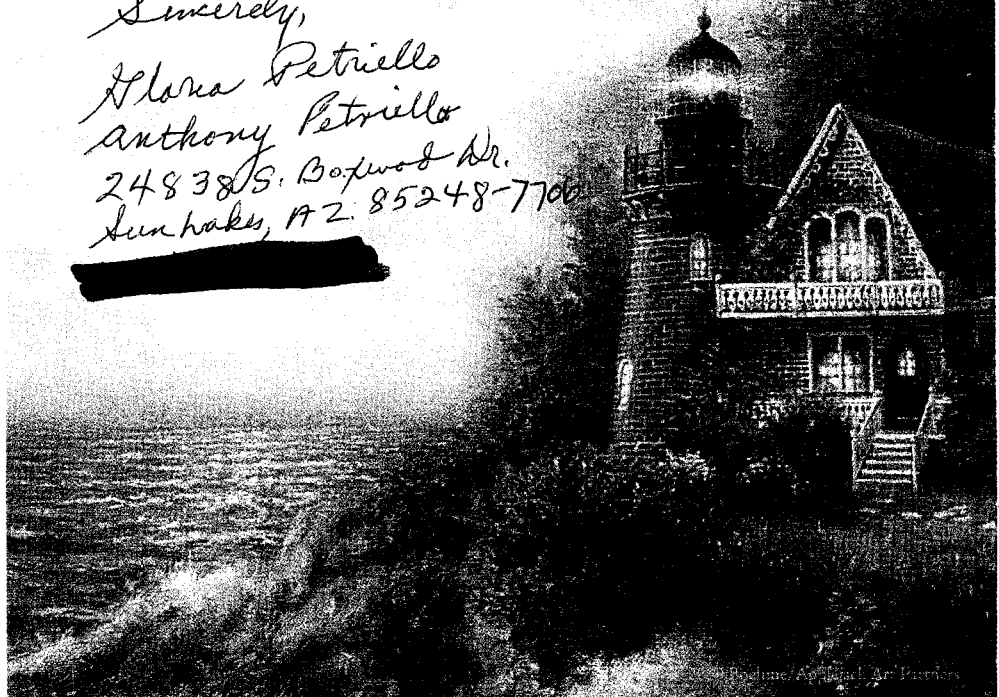 Sincerely,
Gloria Petriello
Anthony Petriello
24838 S. Boxwood Dr.
Sun Lakes, AZ. 85248-7706
/Applejack Art Partners